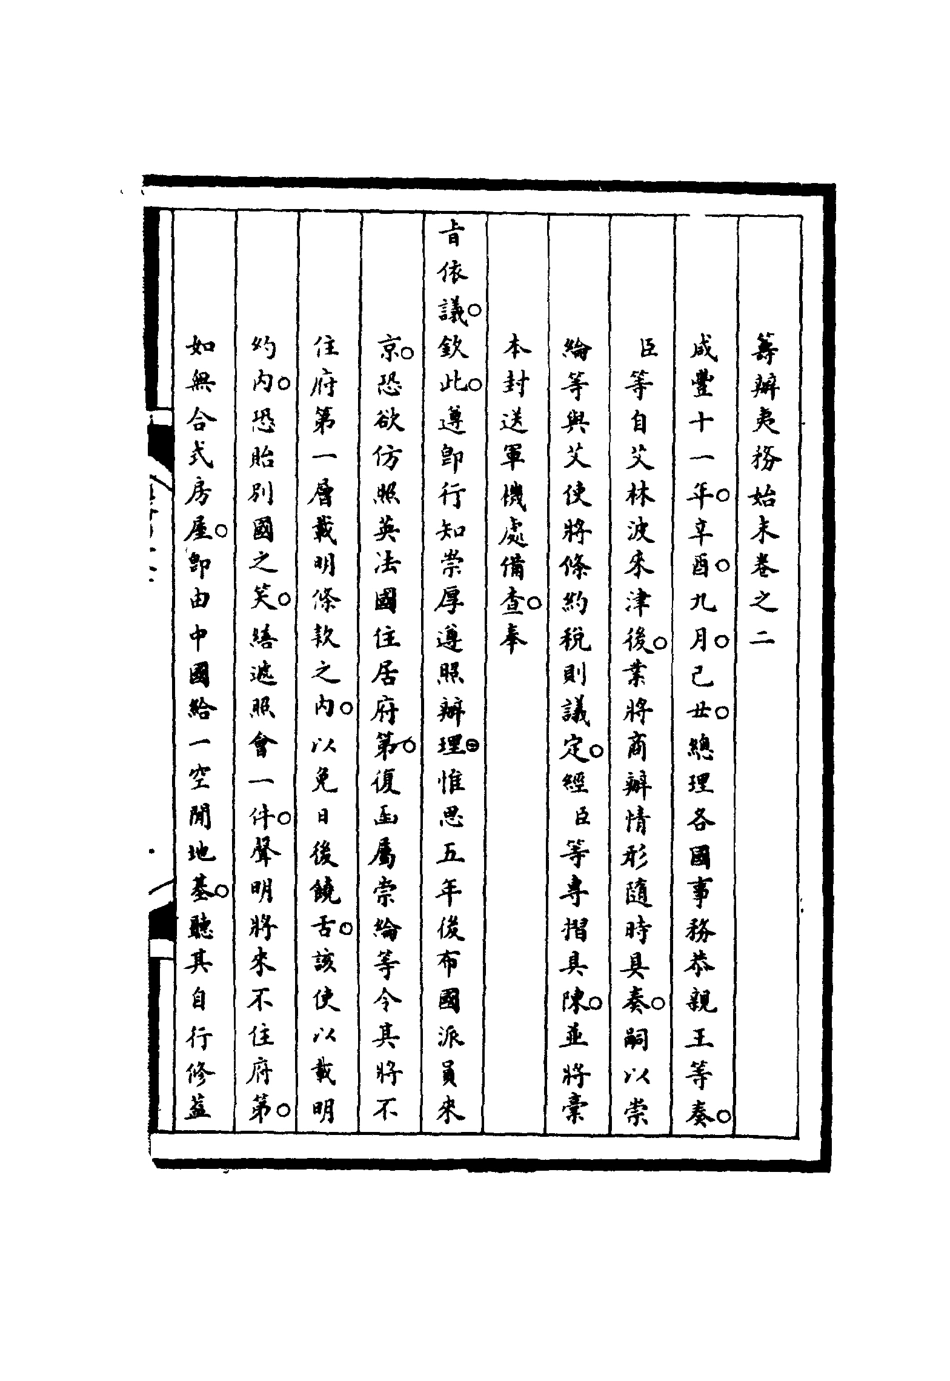 籌辦夷務始末卷之二
咸豐十一年。辛酉。九月。己丑。總理各國事務恭親王等奏。
臣等自艾林波來津後。業將商辦情形隨時具奏。嗣以崇
綸等與艾使將條約稅則議定。經臣等專摺具陳。並將稾
本封送軍機處備查。奉
旨依議。欽此。遵卽行知崇厚遵照辦理。惟思五年後布國派員來
京。恐欲仿照英法國住居府第。復函屬崇綸等令其將不
住府第一層載明條款之內。以免日後饒舌。該使以載明
約內。恐貽別國之笑。繕遞照會一件。聲明將來不住府第。
如無合式房屋。卽由中國給一空閒地基。聽其自行修蓋